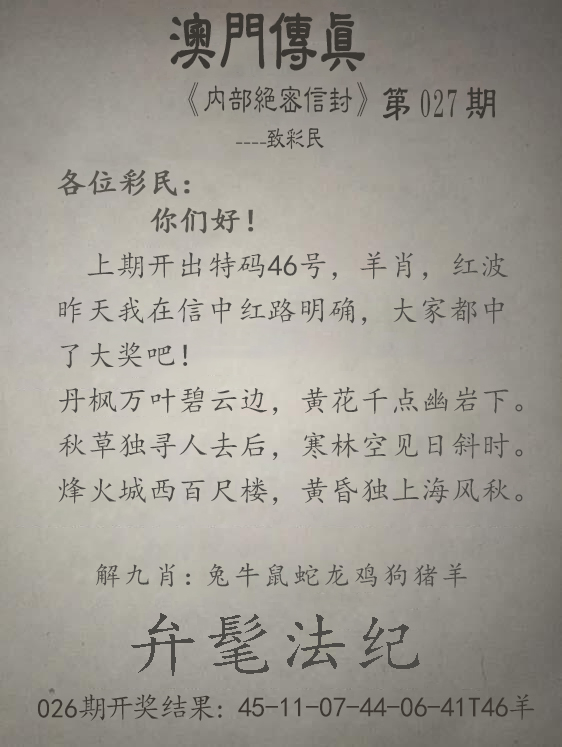 澳門傳眞
《内部絕密信封》第027期
----致彩民
各位彩民：
你们好！
上期开出特码46号，羊肖，红波
昨天我在信中红路明确，大家都中
了大奖吧！
丹枫万叶碧云边，黄花千点幽岩下。
秋草独寻人去后，寒林空见日斜时。
烽火城西百尺楼，黄昏独上海风秋。
解九肖：兔牛鼠蛇龙鸡狗猪羊
弁髦法纪
026期开奖结果：45-11-07-44-06-41T46羊